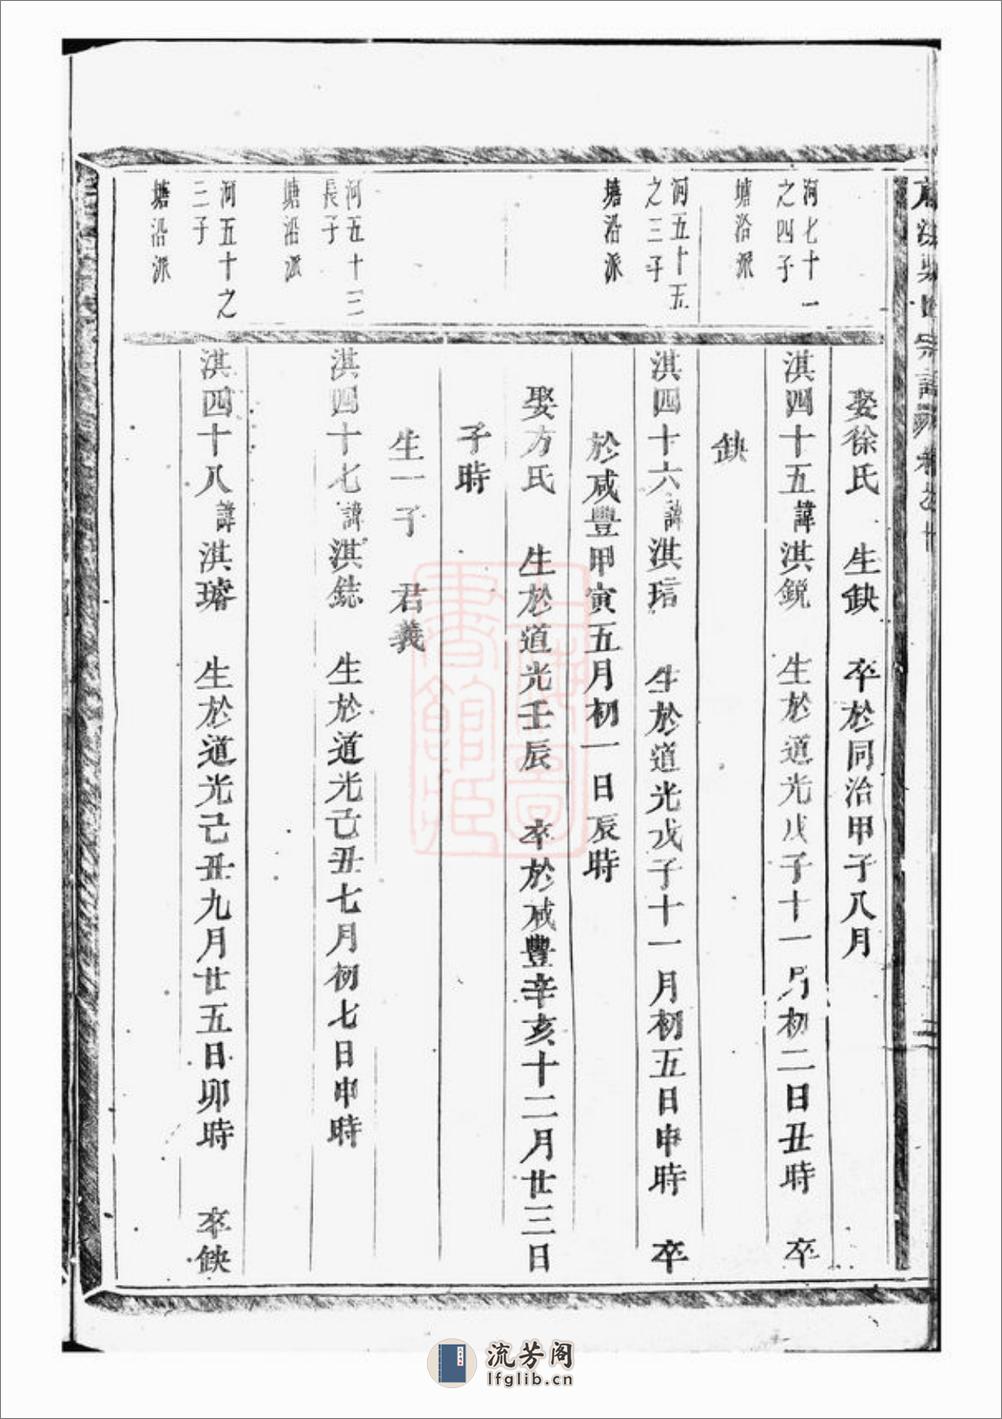 宗譜
娶徐氏 生缺 卒於同治甲子八月
河七十一
之四子
塘沿派
淇四十五諱淇銳 生於道光戊子十一月初二日丑時 卒
缺
河五十五
之三子
塘沿派
淇四十六諱淇琂 生於道光戊子十一月初五日申時 卒
於咸豐甲寅五月初一日辰時
娶方氏 生於道光壬辰 卒於咸豐辛亥十二月廿三日
子時
生一子 君義
河五十三
長子
塘沿派
淇四十七諱淇鋕 生於道光己丑七月初七日申時
河五十之
三子
塘沿派
淇四十八諱淇璿 生於道光己丑九月廿五日卯時 卒缺
上海圖
書館藏
流芳阁
lfglib.cn